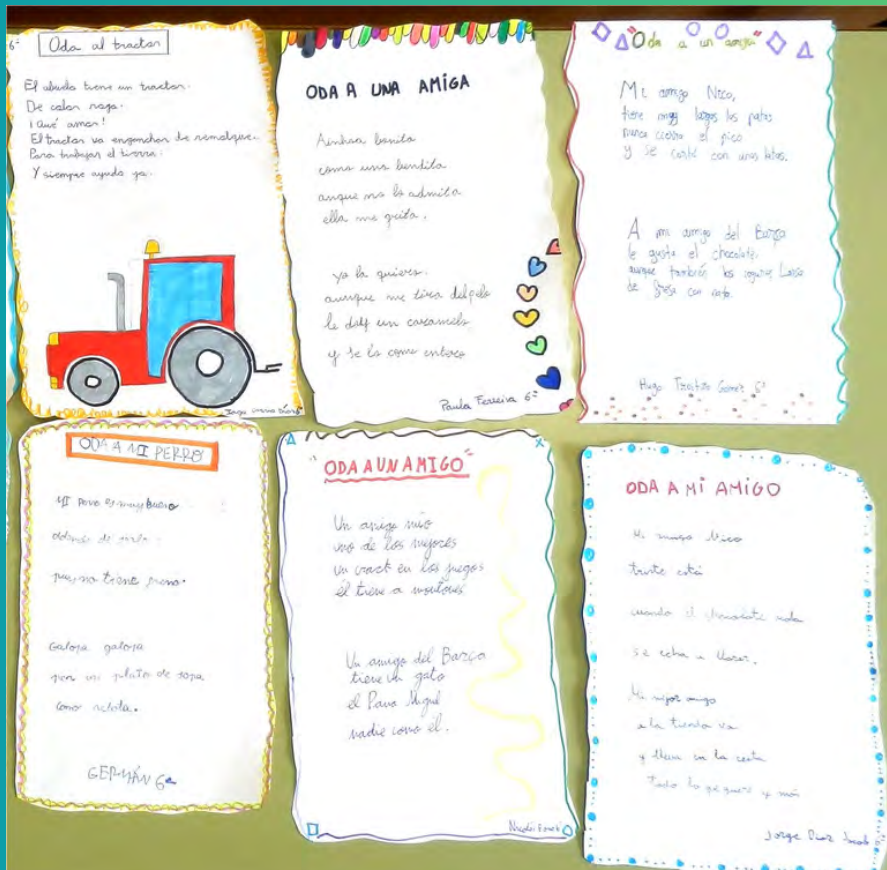 6º
Oda al tractor
El abuelo tiene un tractor.
De color rojo.
¡Qué amor!
El tractor va enganchar de remolque.
Para trabajar el tierra.
Y siempre ayudo yo.
ODA A UNA AMIGA
Ainhoa bonita
como una bendita
aunque no lo admita
ella me grita.
yo la quiero.
aunque me tira del pelo
le doy un caramelo
y se lo come entero
Paula Ferreira 6º
"Oda a un amigo"
Mi amigo Nico,
tiene muy largas las patas
nunca cierra el pico
y se cortó con unas latas.
A mi amigo del Barça
le gusta el chocolate,
aunque también los yogures
de fresa con nata.
Hugo 6º
ODA A MI PERRO
Mi perro es muy bueno
pues no tiene freno.
Galopa galopa
por un plato de sopa
como
GERMÁN 6º
"ODA A UN AMIGO"
Un amigo mío
uno de los mejores
un crack en los juegos
él tiene a montones
Un amigo del Barça
tiene un gato
el Pavo Miguel
nadie como él.
ODA A MI AMIGO
Mi amigo Nico
triste está
cuando el chocolate
se echa a llorar.
Mi mejor amigo
a la tienda va
y lleva en la cesta
todo lo que quiere y más
Jorge Díaz